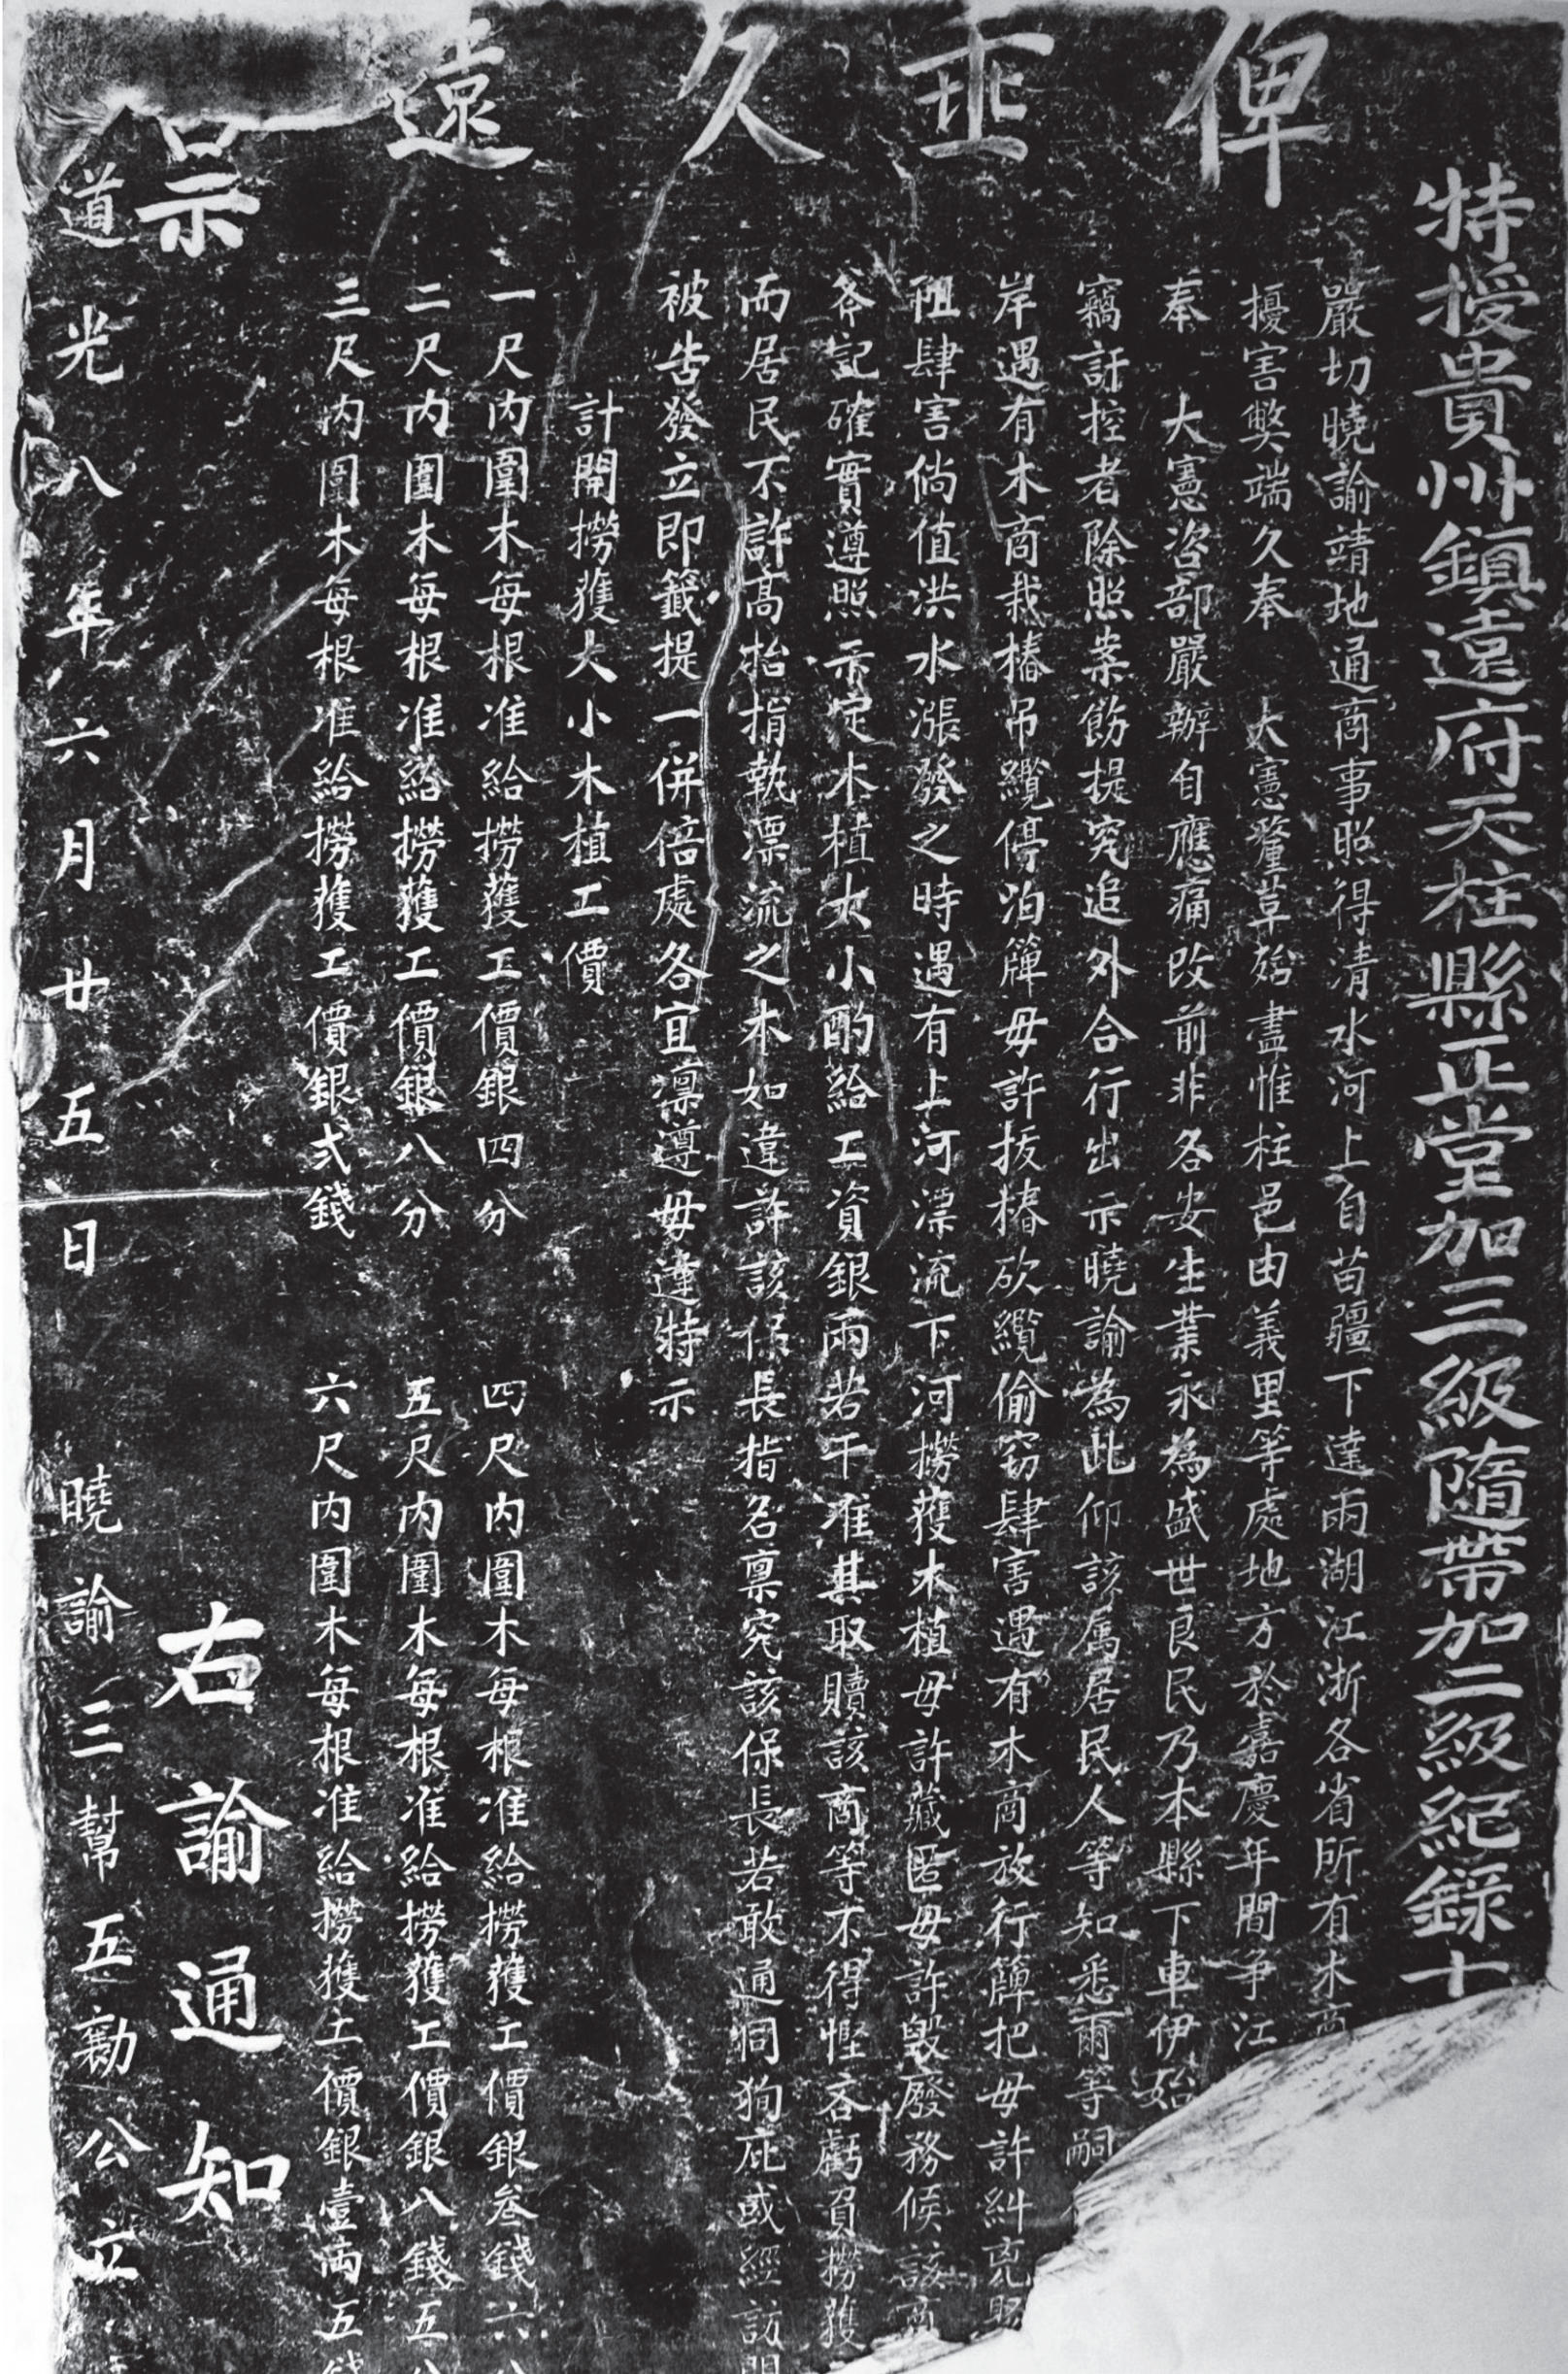 俾垂久遠
特授貴州鎮遠府天柱縣正堂加三級隨帶加二級紀錄十
嚴切曉諭靖地通商事照得清水河上自苗疆下達兩湖江浙各省所有木商
擾害弊端久奉　大憲釐革殆盡惟柱邑由義里等處地方於嘉慶年間爭江
奉　大憲咨部嚴辦自應痛改前非各安生業永為盛世良民乃本縣下車伊始
竊訐控者除照案飭提究追外合行出示曉諭為此仰該属居民人等知悉爾等嗣
岸遇有木商栽樁吊纜停泊簰毋許拔樁砍纜偷窃肆害遇有木商放行簰把毋許糾克
阻肆害倘值洪水漲發之時遇有上河漂流下河撈獲木植毋許藏匿毋許毀廢務候該商
斧記確實遵照示定木植大小酌給工資銀兩若干准其取贖該商等不得慳吝虧負撈獲
而居民不許高抬揹執漂流之木如違許該保長指名禀究該保長若敢通同狥庇或經訪聞
被告發立即籤提一併倍處各宜凜遵毋違特示
計開撈獲大小木植工價
一尺内圍木每根准給撈獲工價銀四分　四尺内圍木每根准給撈獲工價銀叁錢六
二尺内圍木每根准給撈獲工價銀八分　五尺内圍木每根准給撈獲工價銀八錢五
三尺内圍木每根准給撈獲工價銀弍錢　六尺内圍木每根准給撈獲工價銀壹兩五
右諭通知
道光八年六月廿五日　曉諭三幫五勷公立
示